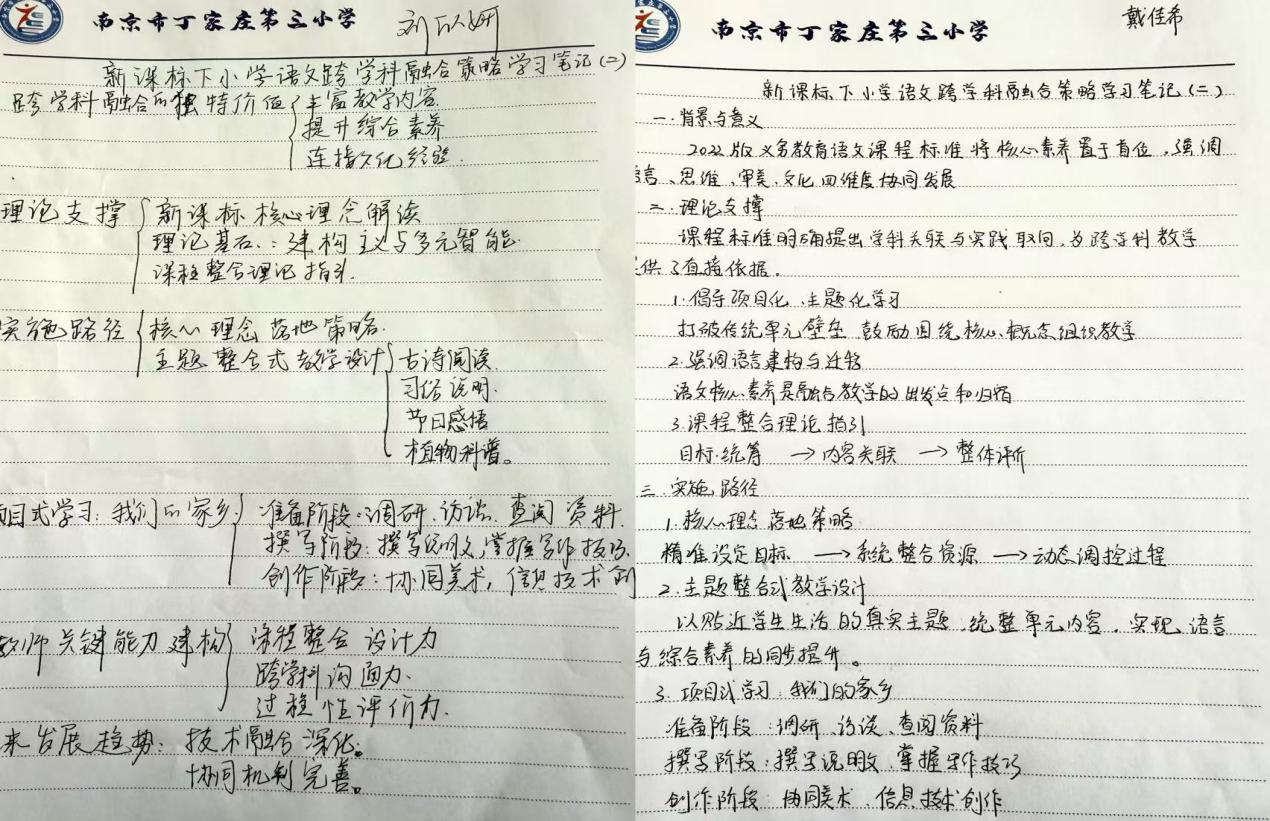 南京市丁家庄第三小学
刘以妍
新课标下小学语文跨学科融合策略学习笔记(二)
跨学科融合的独特价值 丰富教学内容
提升综合素养
连接文化经验.
理论支撑 新课标核心理念解读
理论基石:建构主义与多元智能.
课程整合理论指引.
实施路径 核心理念落地策略.
主题整合式教学设计 古诗阅读.
习俗说明.
节日感悟
植物科普。
目式学习:我们的家乡 准备阶段:调研、访谈、查阅资料.
撰写阶段:撰写说明文,掌握写作技巧.
创作阶段:协同美术,信息技术创
教师关键能力建构 课程整合设计力
跨学科沟通力.
过程性评价力.
来发展趋势:技术融合深化。
协同机制完善。
南京市丁家庄第三小学
戴佳希
新课标下小学语文跨学科融合策略学习笔记(二)
一.背景与意义
2022版义务教育语文课程标准将核心素养置于首位,强调
语言、思维、审美、文化四维度协同发展
二.理论支撑
课程标准明确提出学科关联与实践取向,为跨学科教学
提供了直接依据。
1.倡导项目化、主题化学习
打破传统单元壁垒,鼓励围绕核心概念组织教学
2.强调语言建构与迁移
语文核心素养是融合教学的出发点和归宿
3.课程整合理论指引
目标统筹 → 内容关联 → 整体评价
三.实施路径
1.核心理念落地策略
精准设定目标 → 系统整合资源 → 动态调控过程
2.主题整合式教学设计
以贴近学生生活的真实主题,统整单元内容,实现语言
与综合素养的同步提升。
3.项目式学习:我们的家乡
准备阶段:调研、访谈、查阅资料
撰写阶段:撰写说明文、掌握写作技巧
创作阶段:协同美术、信息技术创作